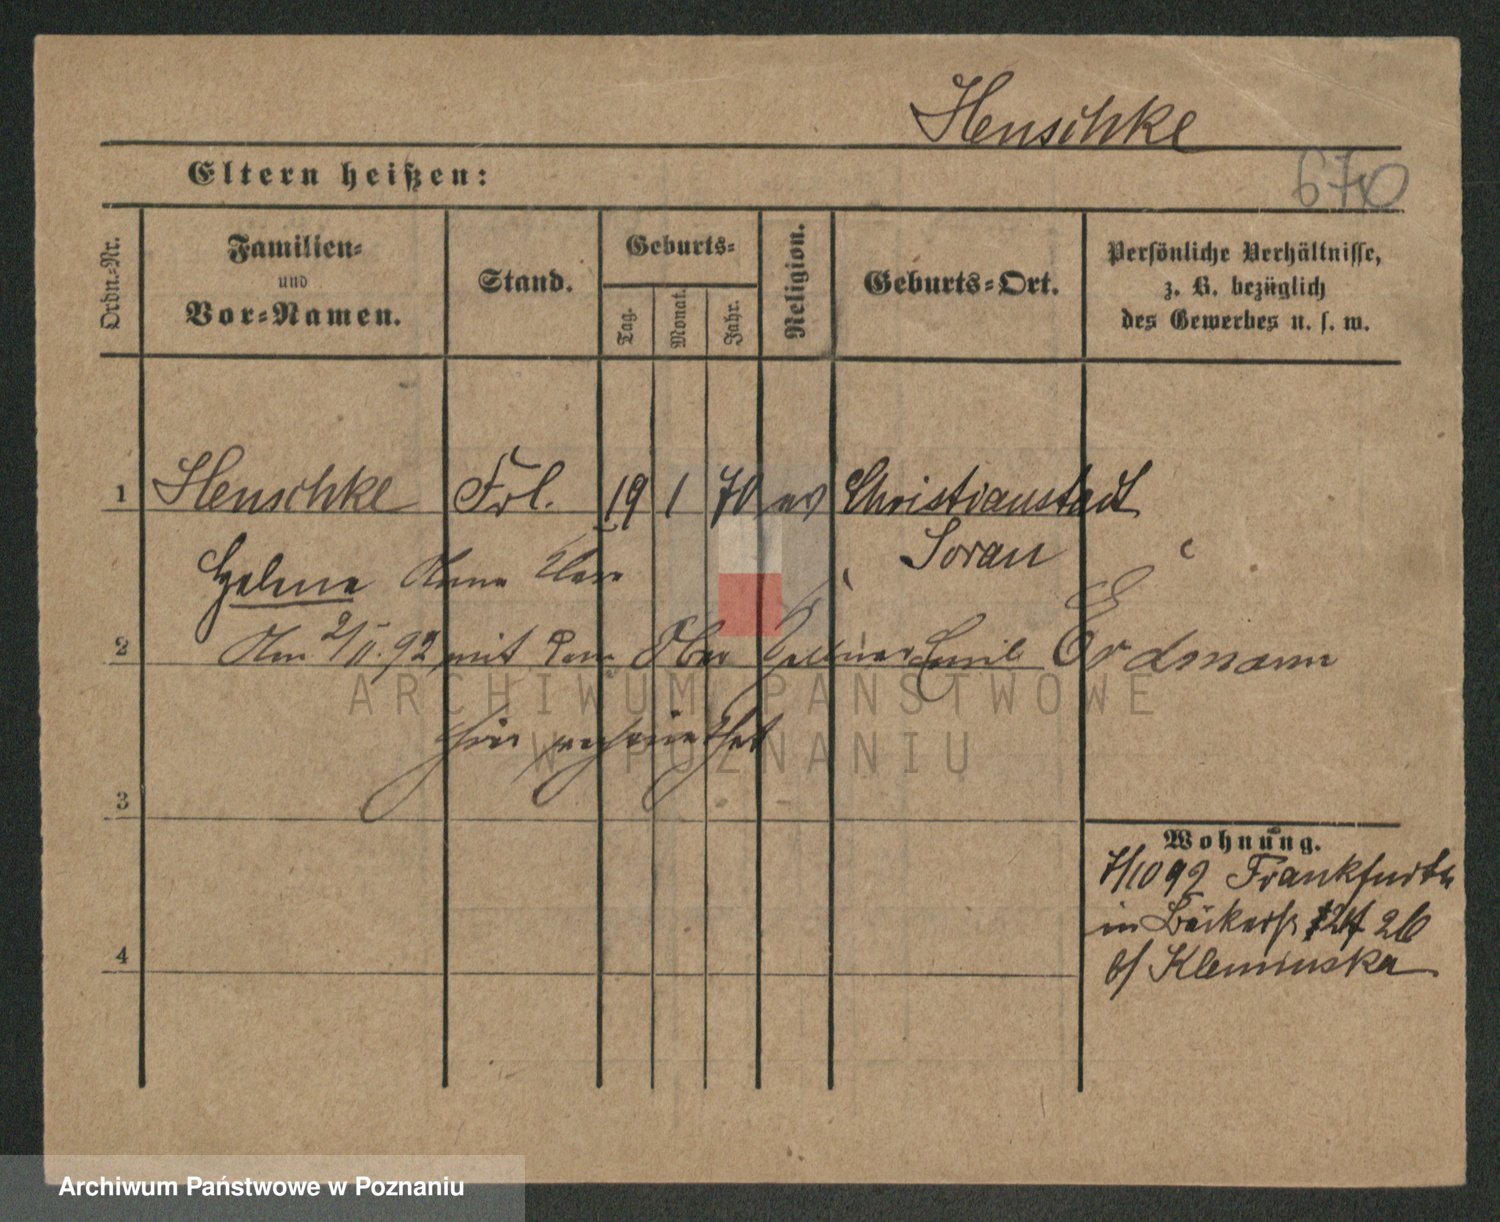 Henschke
670
Eltern heißen:
Ordn.-Nr.
Familien-
und
Vor-Namen.
Stand.
Geburts-
Tag.
Monat.
Jahr.
Religion.
Geburts-Ort.
Persönliche Verhältnisse,
z. B. bezüglich
des Gewerbes u. s. w.
1 Henschke Frl. 19 1 70 ev Christianstadt
Sorau
Helene Anna Clara
2
Am 2/II. 92 mit dem Ober Kellner Emil Erdmann
hier verheirathet
ARCHIWUM PAŃSTWOWE
W POZNANIU
3
Wohnung.
7/10 92 Frankfurt
in Bäckerstr 26
b/ Kleminska
4
Archiwum Państwowe w Poznaniu